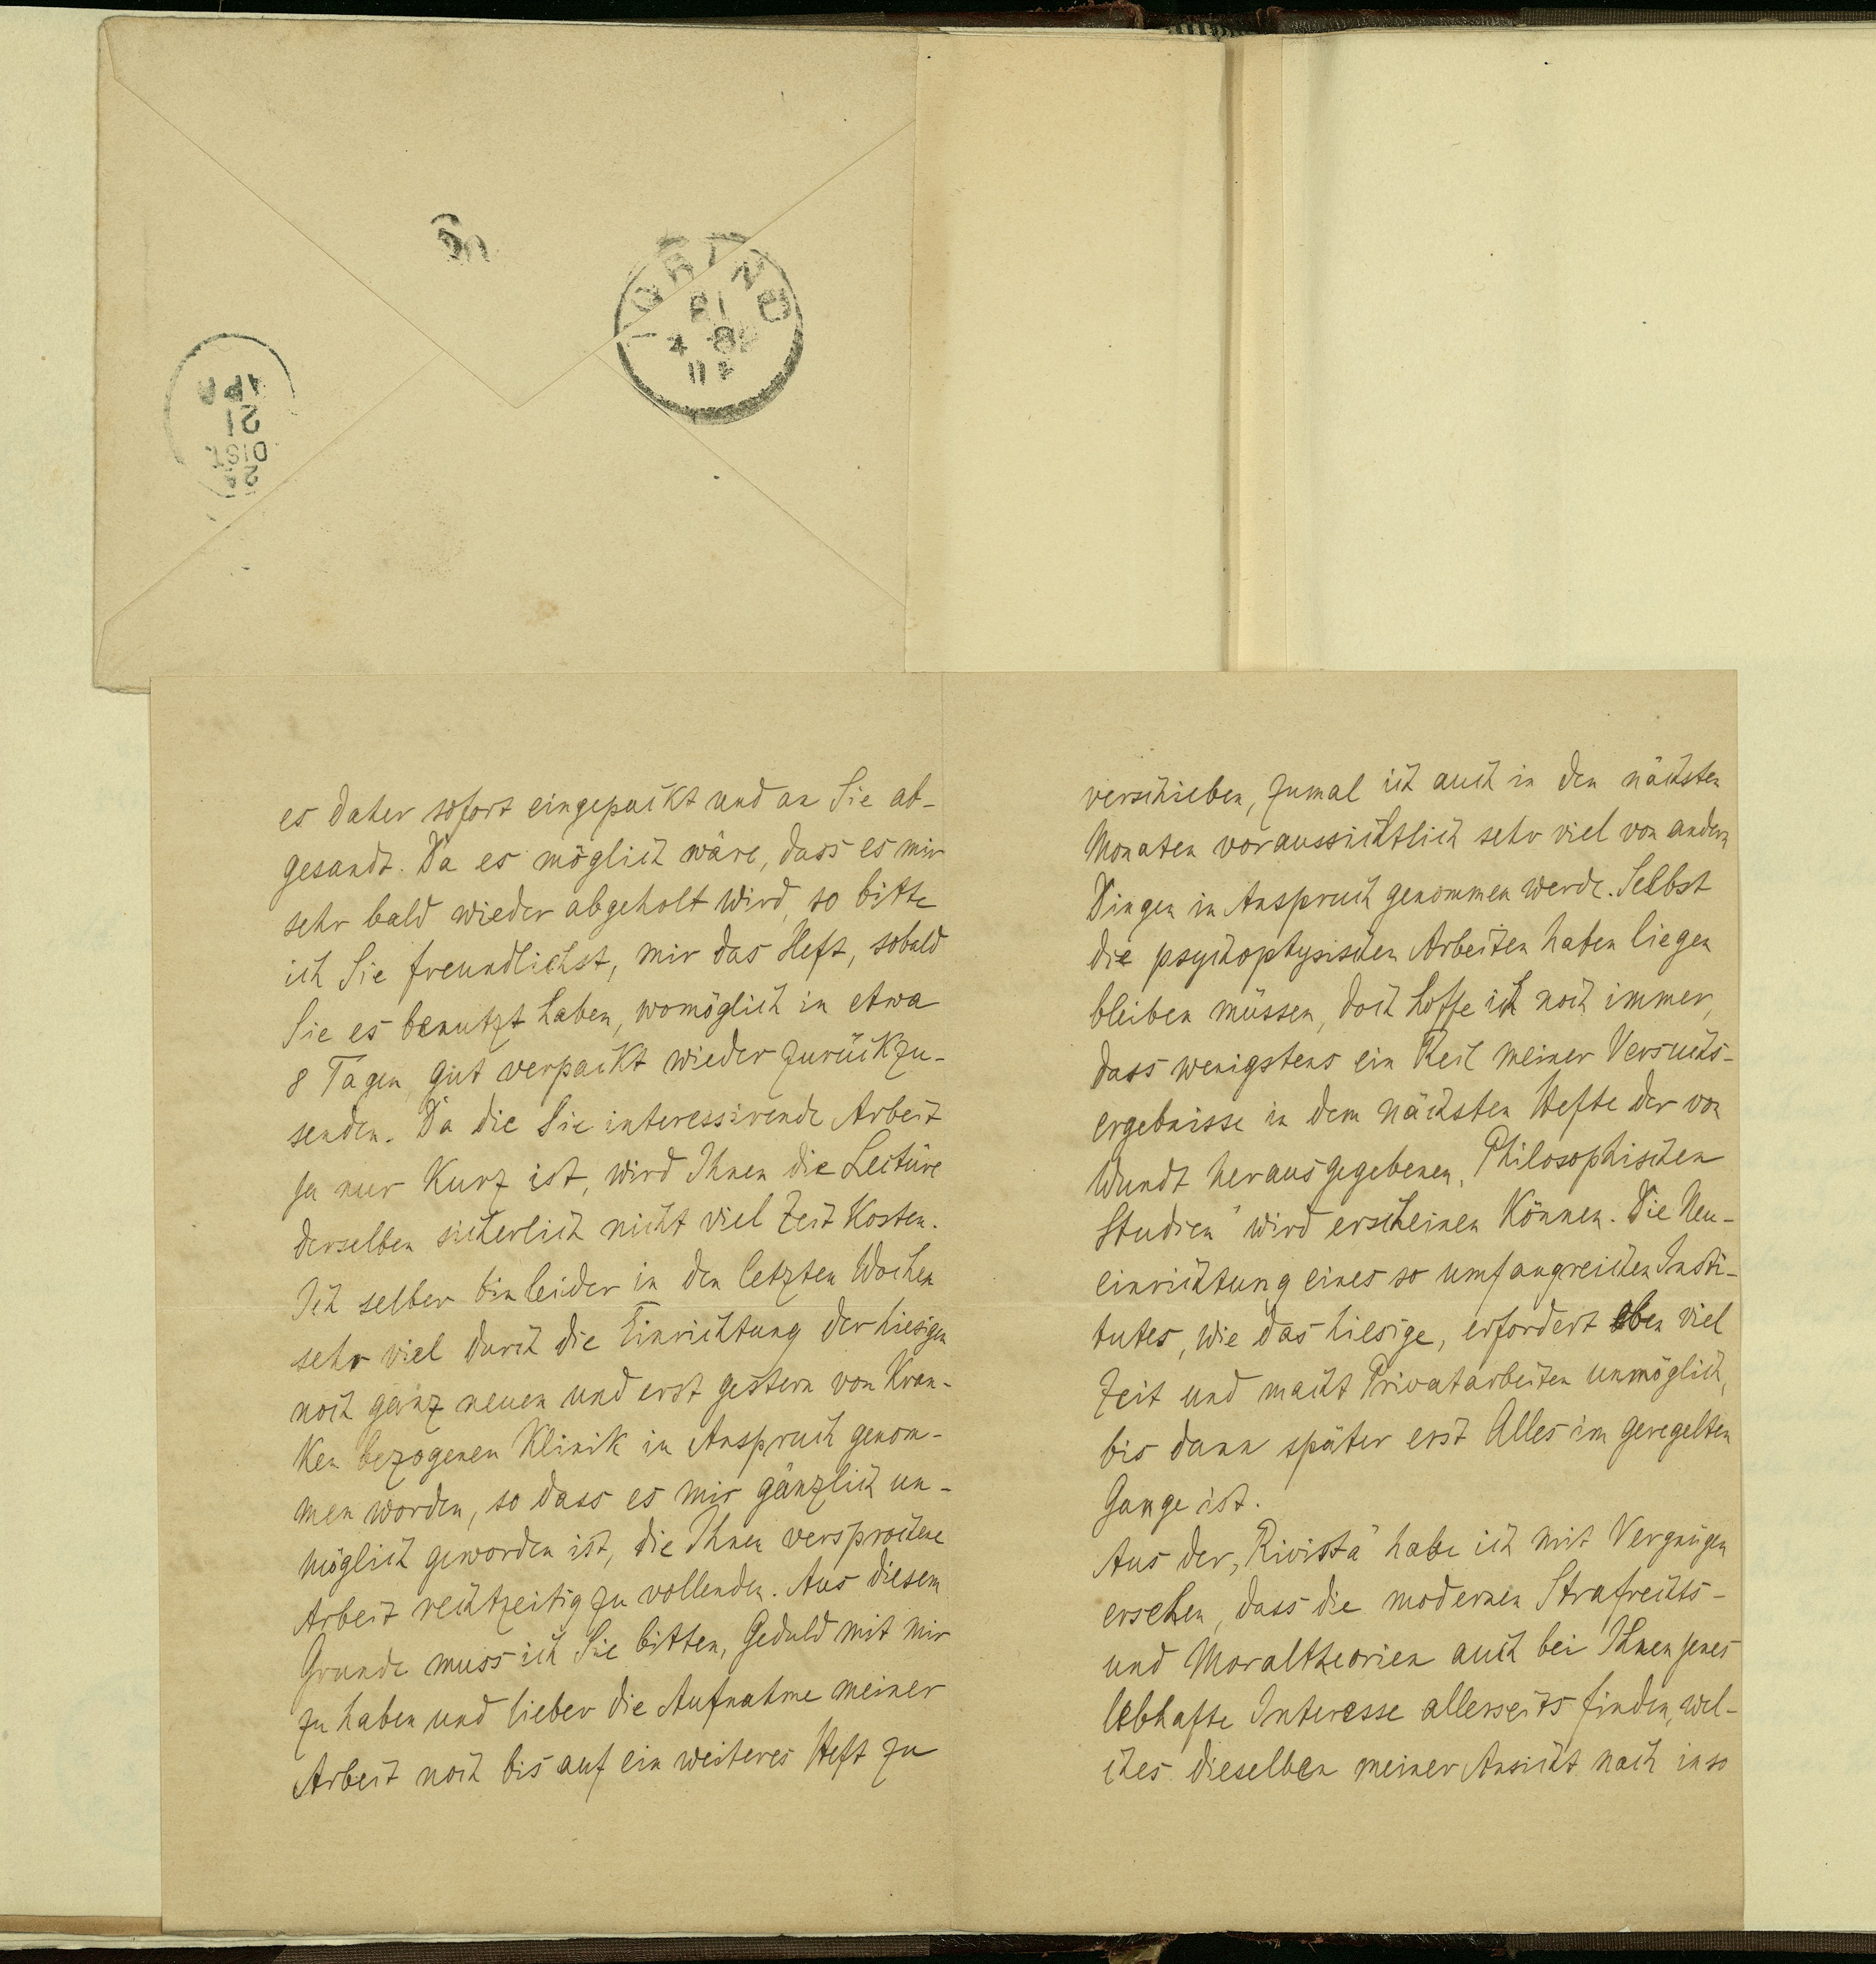 TORINO
21
4-82
APR
21
DIST.
es daher sofort eingepackt und an Sie ab-
gesandt. Da es möglich wäre, dass es mir
sehr bald wieder abgeholt wird, so bitte
ich Sie freundlichst, mir das Heft, sobald
Sie es benutzt haben, womöglich in etwa
8 Tagen, gut verpackt wieder zurückzu-
senden. Da die Sie interessirende Arbeit
ja nur kurz ist, wird Ihnen die Lectüre
derselben sicherlich nicht viel Zeit kosten.
Ich selber bin leider in den letzten Wochen
sehr viel durch die Einrichtung der hiesigen
noch ganz neuen und erst gestern von Kran-
ken bezogenen Klinik in Anspruch genom-
men worden, so dass es mir gänzlich un-
möglich geworden ist, die Ihnen versprochene
Arbeit rechtzeitig zu vollenden. Aus diesem
Grunde muss ich Sie bitten, Geduld mit mir
zu haben und lieber die Aufnahme meiner
Arbeit noch bis auf ein weiteres Heft zu
verschieben, zumal ich auch in den nächsten
Monaten voraussichtlich sehr viel von andern
Dingen in Anspruch genommen werde. Selbst
die psychophysischen Arbeiten haben liegen
bleiben müssen, doch hoffe ich noch immer,
dass wenigstens ein Theil meiner Versuchs-
ergebnisse in dem nächsten Hefte der von
Wundt herausgegebenen „Philosophischen
Studien“ wird erscheinen können. Die Neu-
einrichtung eines so umfangreichen Insti-
tutes, wie das hiesige, erfordert eben viel
Zeit und macht Privatarbeiten unmöglich,
bis dann später erst Alles im geregelten
Gange ist.
Aus der „Rivista“ habe ich mit Vergnügen
ersehen, dass die modernen Strafrechts-
und Moraltheorien auch bei Ihnen jenes
lebhafte Interesse allerseits finden, wel-
ches dieselben meiner Ansicht nach in so